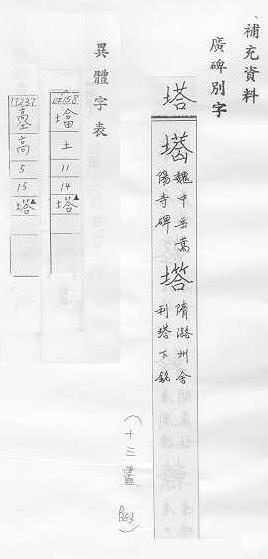 補充資料
廣碑別字
塔
魏中岳嵩
陽寺碑
隋潞州舍
利塔下銘
(十三畫
異體字表
墖
土
11
14
塔▲
高
5
15
塔▲